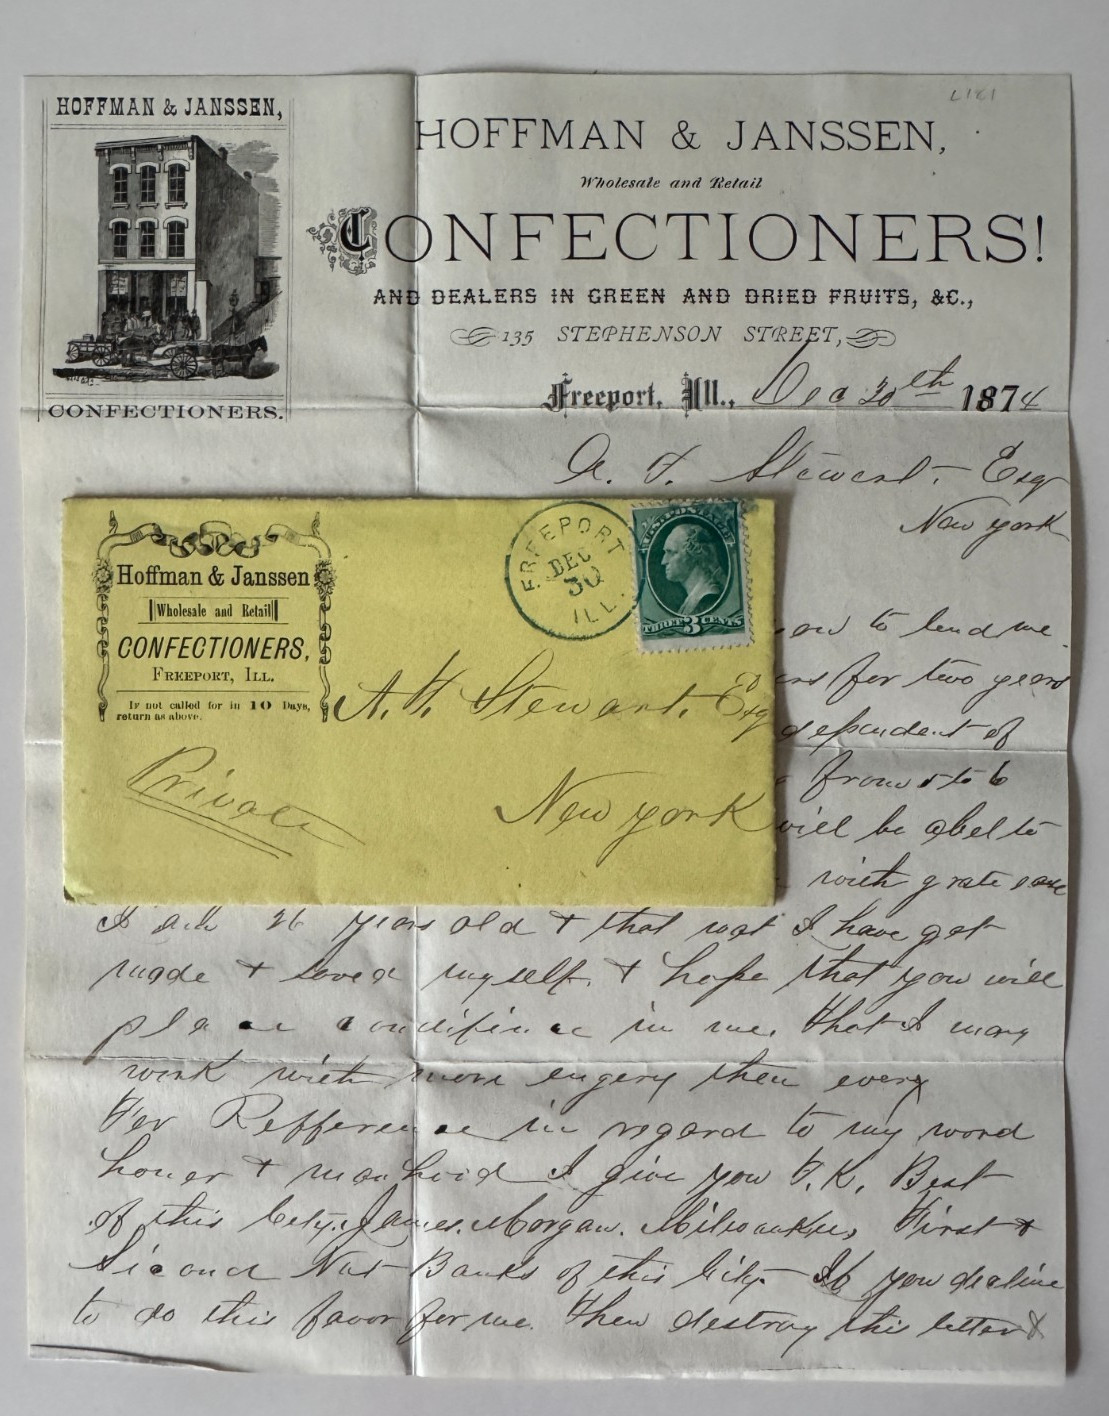 HOFFMAN & JANSSEN,
CONFECTIONERS.
HOFFMAN & JANSSEN,
Wholesale and Retail
CONFECTIONERS!
AND DEALERS IN GREEN AND DRIED FRUITS, &C.,
135 STEPHENSON STREET,
Freeport, Ill., Dec 30th 1874
A. T. Stewart, Esq
New york
to lend me
for two years
dependent of
from 5 to 6
will be abel to
with grate ease
I am 26 years old & that wat I have got
made & saved myself. & hope that you will
place condifince in me. that I may
work with more engery then every
For Refference in regard to my word
honer & manhood I give you F. K. Best
of this City. James. Morgan. Milwaukee, First &
Second Nat Banks of this City. If you decline
to do this favor for me. then destroy this letter &
Hoffman & Janssen
Wholesale and Retail
CONFECTIONERS,
FREEPORT, ILL.
If not called for in 10 Days,
return as above.
FREEPORT
DEC
30
ILL.
U.S. POSTAGE
THREE 3 CENTS
A. T. Stewart. Esq
New york
Private